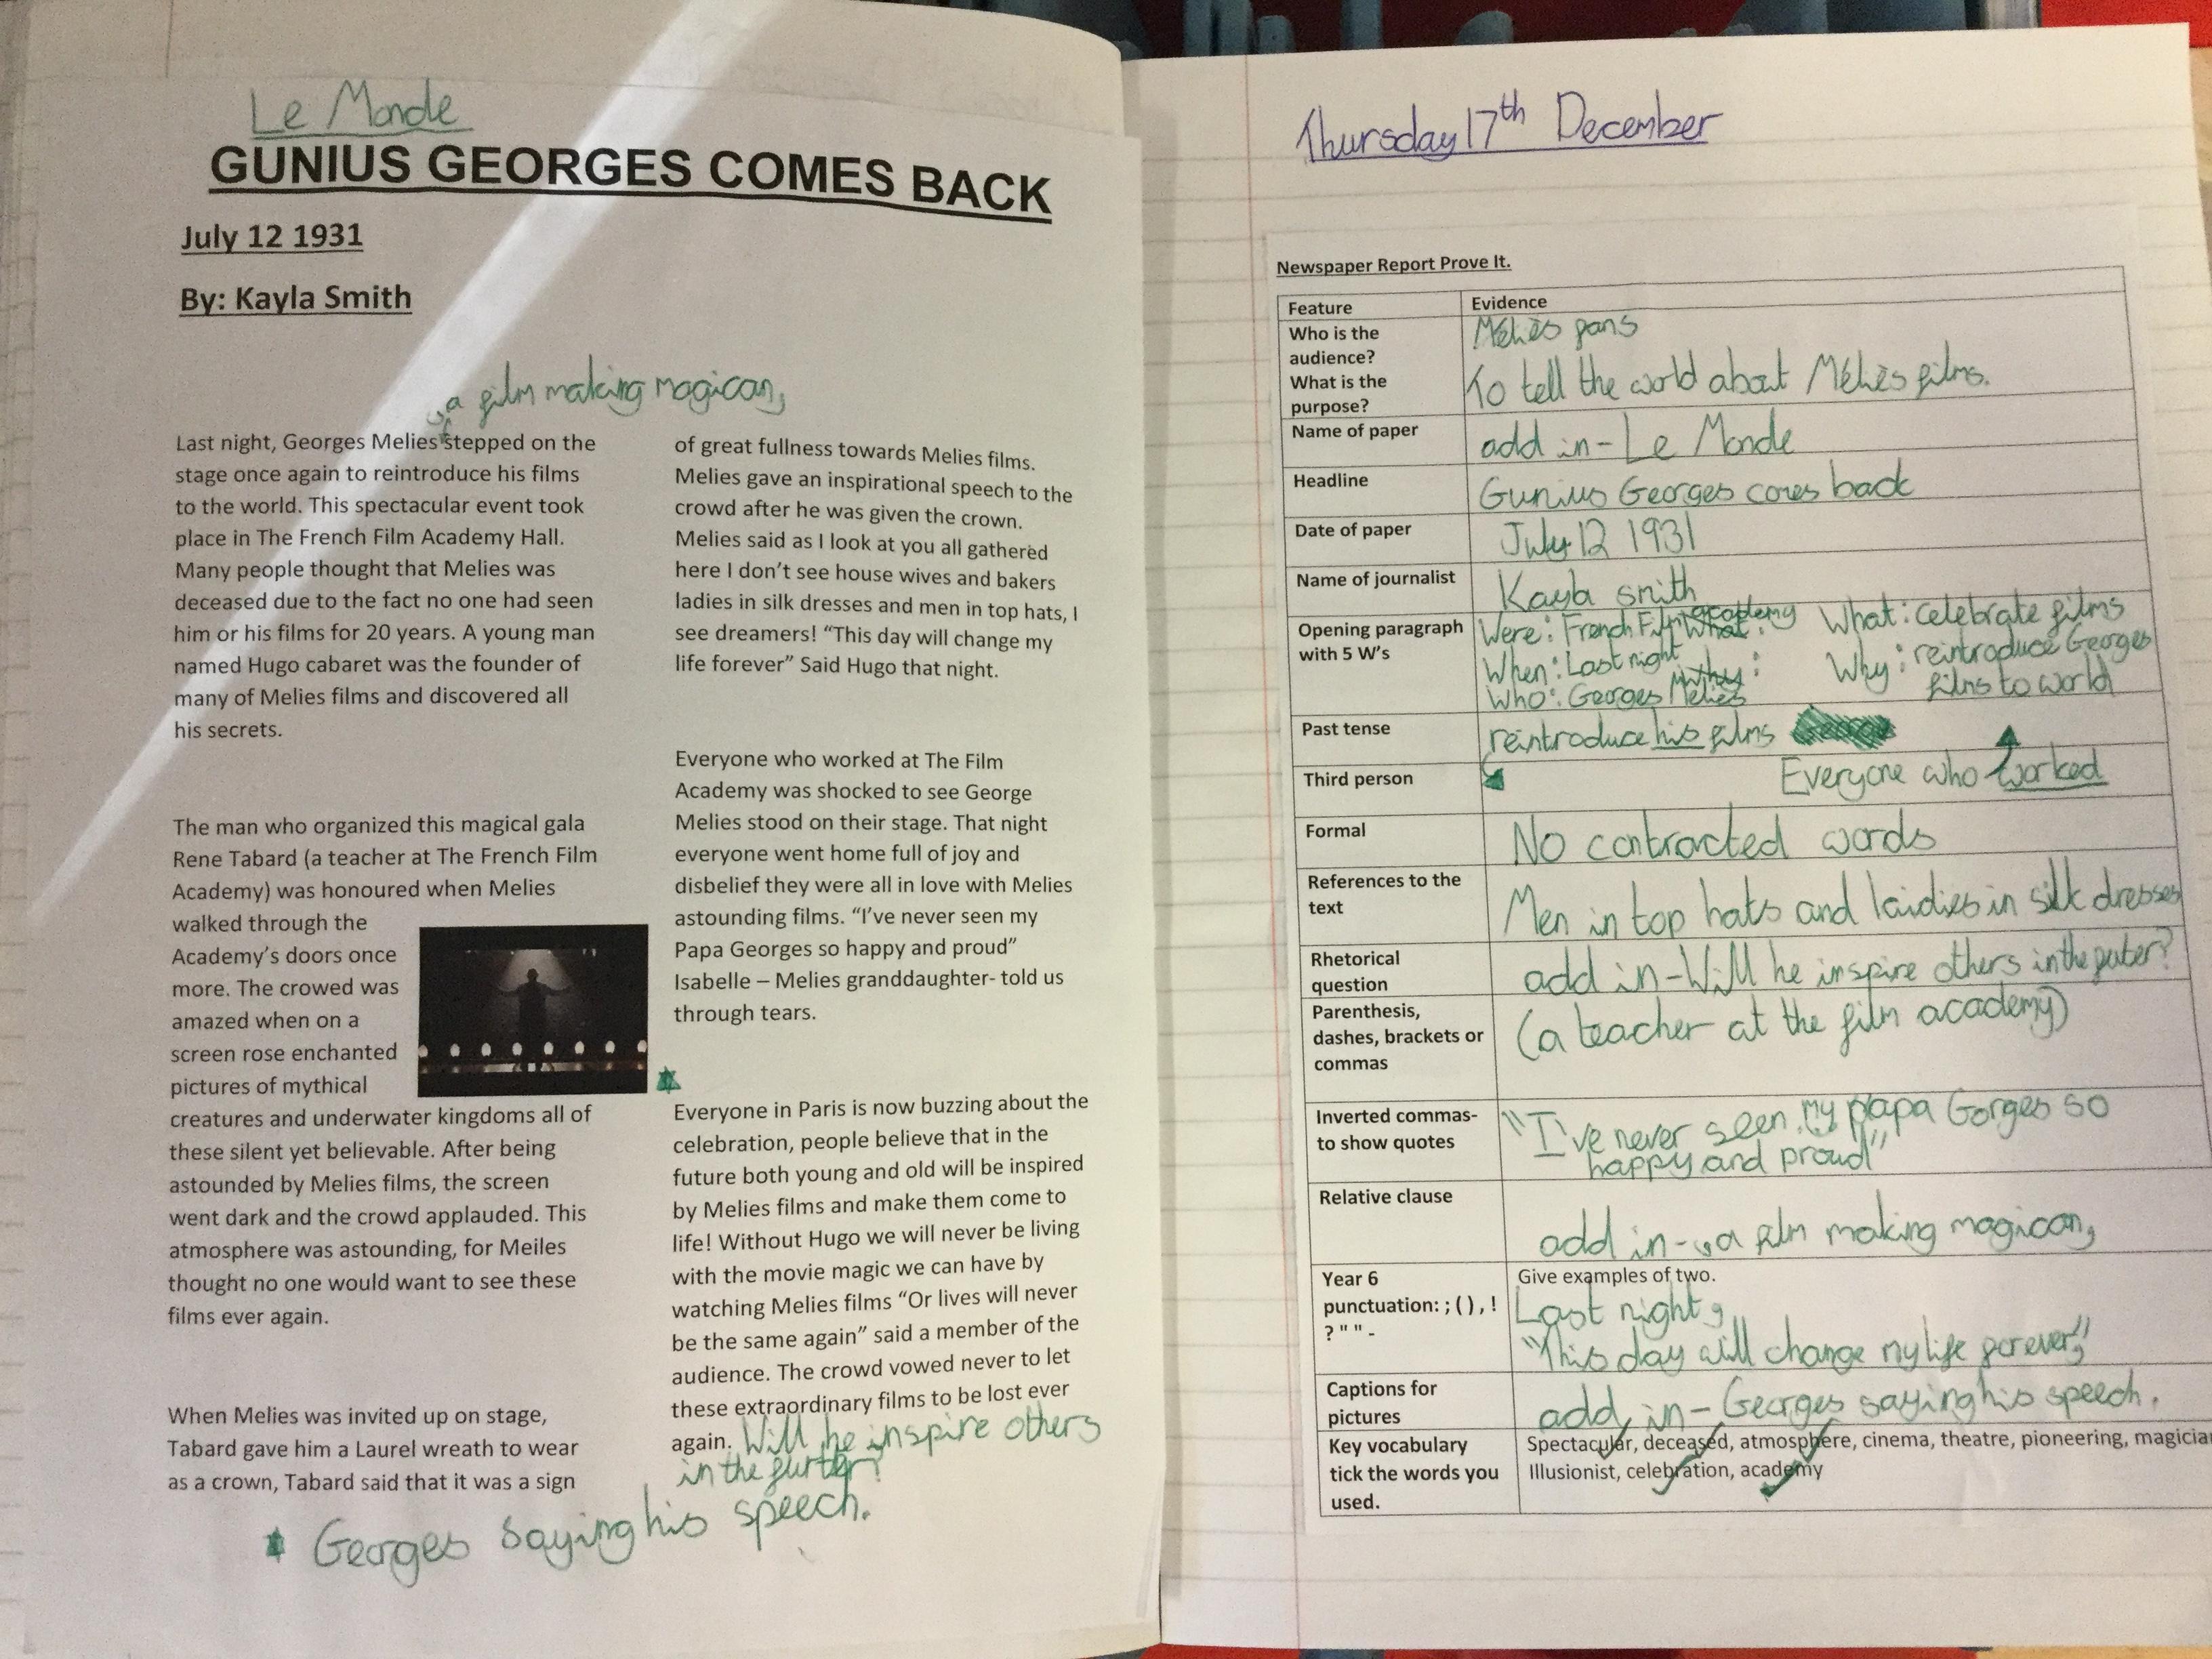 Le Monde
GUNIUS GEORGES COMES BACK
July 12 1931
By: Kayla Smith
, a film making magican,
Last night, Georges Melies stepped on the
stage once again to reintroduce his films
to the world. This spectacular event took
place in The French Film Academy Hall.
Many people thought that Melies was
deceased due to the fact no one had seen
him or his films for 20 years. A young man
named Hugo cabaret was the founder of
many of Melies films and discovered all
his secrets.
The man who organized this magical gala
Rene Tabard (a teacher at The French Film
Academy) was honoured when Melies
walked through the
Academy's doors once
more. The crowed was
amazed when on a
screen rose enchanted
pictures of mythical
creatures and underwater kingdoms all of
these silent yet believable. After being
astounded by Melies films, the screen
went dark and the crowd applauded. This
atmosphere was astounding, for Meiles
thought no one would want to see these
films ever again.
When Melies was invited up on stage,
Tabard gave him a Laurel wreath to wear
as a crown, Tabard said that it was a sign
of great fullness towards Melies films.
Melies gave an inspirational speech to the
crowd after he was given the crown.
Melies said as I look at you all gathered
here I don't see house wives and bakers
ladies in silk dresses and men in top hats, I
see dreamers! "This day will change my
life forever" Said Hugo that night.
Everyone who worked at The Film
Academy was shocked to see George
Melies stood on their stage. That night
everyone went home full of joy and
disbelief they were all in love with Melies
astounding films. "I've never seen my
Papa Georges so happy and proud"
Isabelle – Melies granddaughter- told us
through tears.
Everyone in Paris is now buzzing about the
celebration, people believe that in the
future both young and old will be inspired
by Melies films and make them come to
life! Without Hugo we will never be living
with the movie magic we can have by
watching Melies films "Or lives will never
be the same again" said a member of the
audience. The crowd vowed never to let
these extraordinary films to be lost ever
again. Will he inspire others
in the furter?
Georges saying his speech.
Thursday 17th December
Newspaper Report Prove It.
Feature Evidence
Who is the audience? Méliès fans
What is the purpose? To tell the world about Méliès films.
Name of paper add in- Le Monde
Headline Gunius Georges comes back
Date of paper July 12 1931
Name of journalist Kayla smith
Opening paragraph with 5 W's
Were: French Film academy What: celebrate films
When: Last night Why: reintroduce Georges
Who: Georges Méliès films to world
Past tense reintroduce his films
Third person Everyone who worked
Formal No contracted words
References to the text Men in top hats and laidies in silk dresses
Rhetorical question add in-Will he inspire others in the futer?
Parenthesis, dashes, brackets or commas (a teacher at the film academy)
Inverted commas- to show quotes "I've never seen my papa Gorges so
happy and proud"
Relative clause add in- , a film making magican,
Year 6 Give examples of two.
punctuation: ; ( ) , ! Last night,
? " " - "This day will change my life forever,"
Captions for pictures add in- Georges saying his speech.
Key vocabulary Spectacular, deceased, atmosphere, cinema, theatre, pioneering, magician
tick the words you Illusionist, celebration, academy
used.